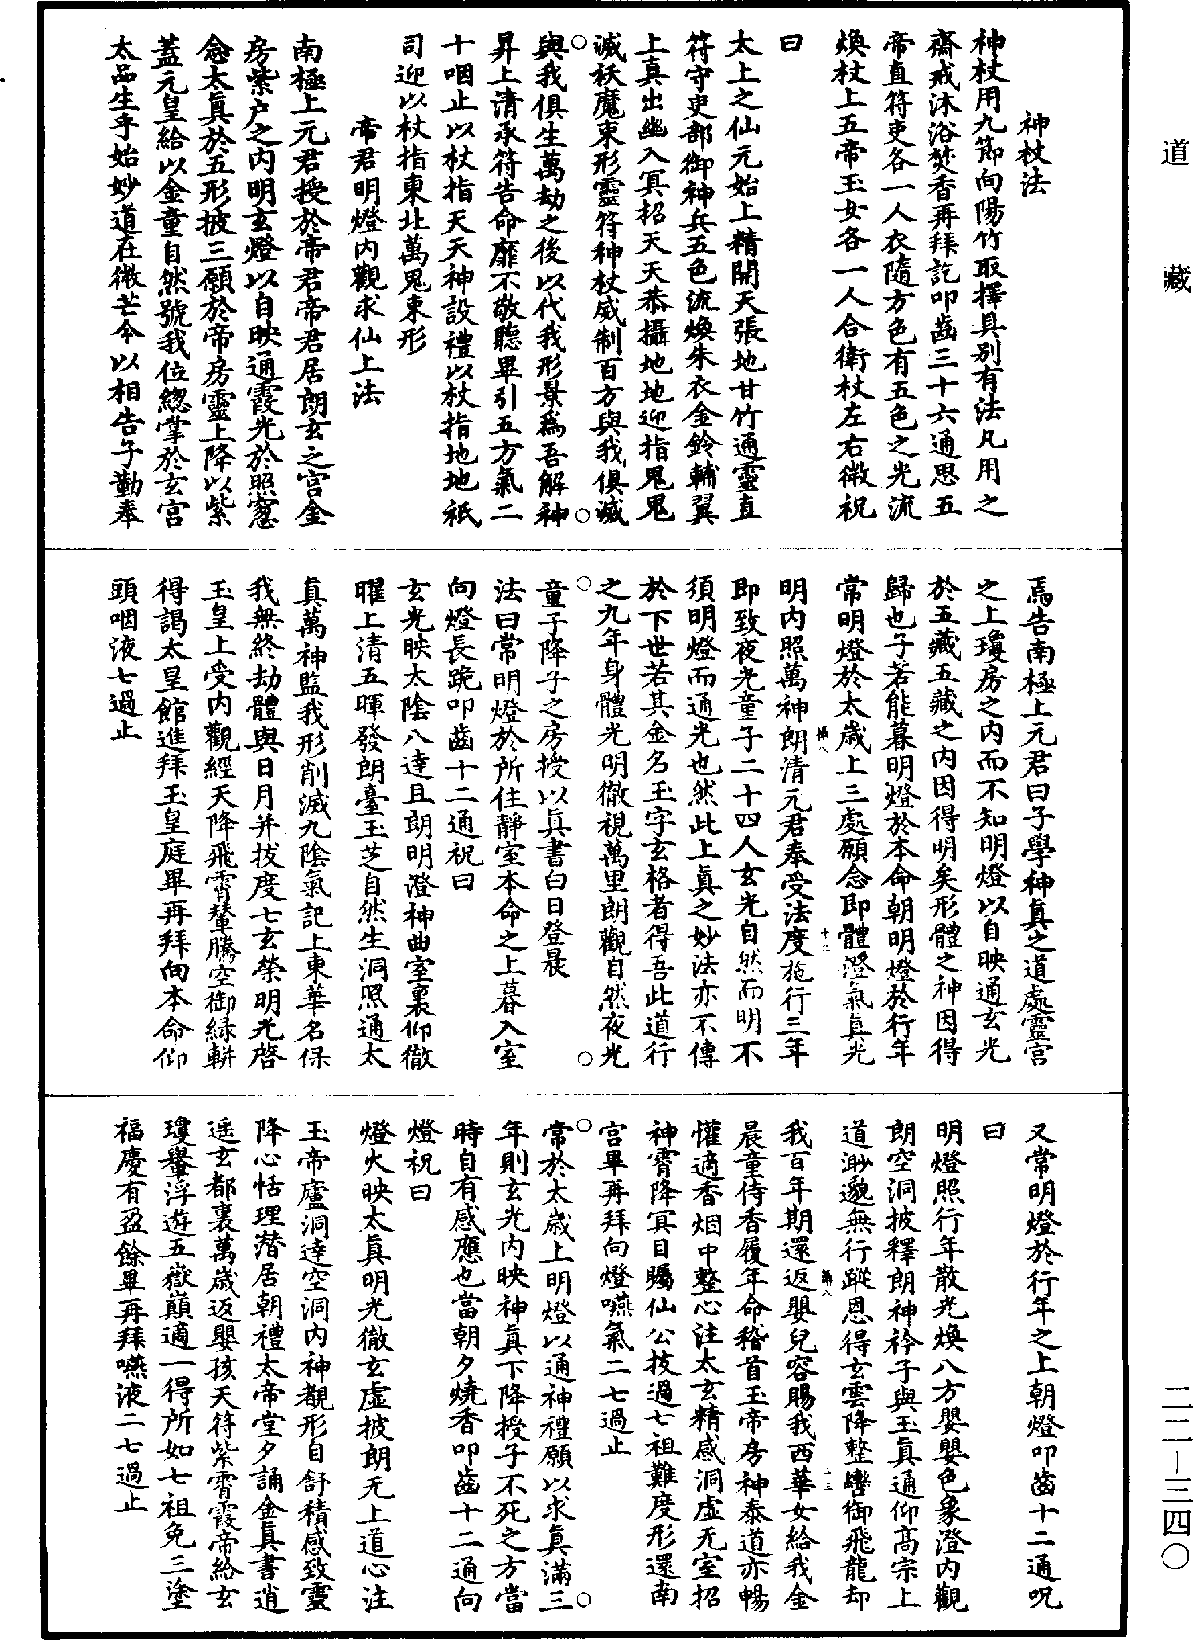 道藏
神杖法
神杖用九節向陽竹取擇具別有法凡用之
齋戒沐浴焚香再拜訖叩齒三十六通思五
帝直符吏各一人衣隨方色有五色之光流
煥杖上五帝玉女各一人合衛杖左右微祝
曰
太上之仙元始上精開天張地甘竹通靈直
符守吏部御神兵五色流煥朱衣金鈴輔翼
上真出幽入冥招天天恭攝地地迎指鬼鬼
滅袄魔束形靈符神杖威制百方與我俱滅
與我俱生萬劫之後以代我形景為吾解神
昇上清承符告命靡不敬聽畢引五方氣二
十咽止以杖指天天神設禮以杖指地地祇
司迎以杖指東北萬鬼束形
帝君明燈內觀求仙上法
南極上元君授於帝君帝君居朗玄之宮金
房紫户之內明玄燈以自映通霞光於照窻
念太真於五形披三願於帝房靈上降以紫
蓋元皇給以金童自然號我位總掌於玄宮
太品生乎始妙道在微芒今以相告子勤奉
焉告南極上元君曰子學神真之道處靈宮
之上瓊房之內而不知明燈以自映通玄光
於五藏五藏之內因得明矣形體之神因得
歸也子若能暮明燈於本命朝明燈於行年
常明燈於太歲上三處願念即體澄氣真光
明內照萬神朗清元君奉受法度施行三年
即致夜光童子二十四人玄光自然而明不
須明燈而通光也然此上真之妙法亦不傳
於下世若其金名玉字玄格者得吾此道行
之九年身體光明徹視萬里朗觀自然夜光
童子降子之房授以真書白日登晨
法曰常明燈於所住靜室本命之上暮入室
向燈長跪叩齒十二通祝曰
玄光映太陰八達且朗明澄神曲室裏仰徹
曜上清五暉發朗臺玉芝自然生洞照通太
真萬神監我形削滅九陰氣記上東華名保
我無終劫體與日月并拔度七玄榮明光啓
玉皇上受內觀經天降飛霄輦騰空御綠軿
得謁太皇館進拜玉皇庭畢再拜向本命仰
頭咽液七過止
又常明燈於行年之上朝燈叩齒十二通呪
曰
明燈照行年散光煥八方嬰嬰色象澄內觀
朗空洞披釋朗神衿子與玉真通仰髙宗上
道渺邈無行蹤恩得玄雲降整轡御飛龍却
我百年期還返嬰兒容賜我西華女給我金
晨童侍香履年命稽首玉帝房神泰道亦暢
懽適香烟中整心注太玄精感洞虛无室招
神霄降冥目矚仙公技過七祖難度形還南
宮畢再拜向燈嚥氣二七過止
常於太歲上明燈以通神禮願以求真滿三
年則玄光內映神真下降授子不死之方當
時自有感應也當朝夕燒香叩齒十二通向
燈祝曰
燈火映太真明光徹玄虛披朗无上道心注
玉帝廬洞達空洞內神觀形自舒積感致靈
降心恬理潛居朝禮太帝堂夕誦金真書逍
遥玄都裏萬歲返嬰孩天符紫霄霞帝給玄
瓊轝浮遊五嶽巔適一得所如七祖免三塗
福慶有盈餘畢再拜嚥液二七過止
二二－三四〇